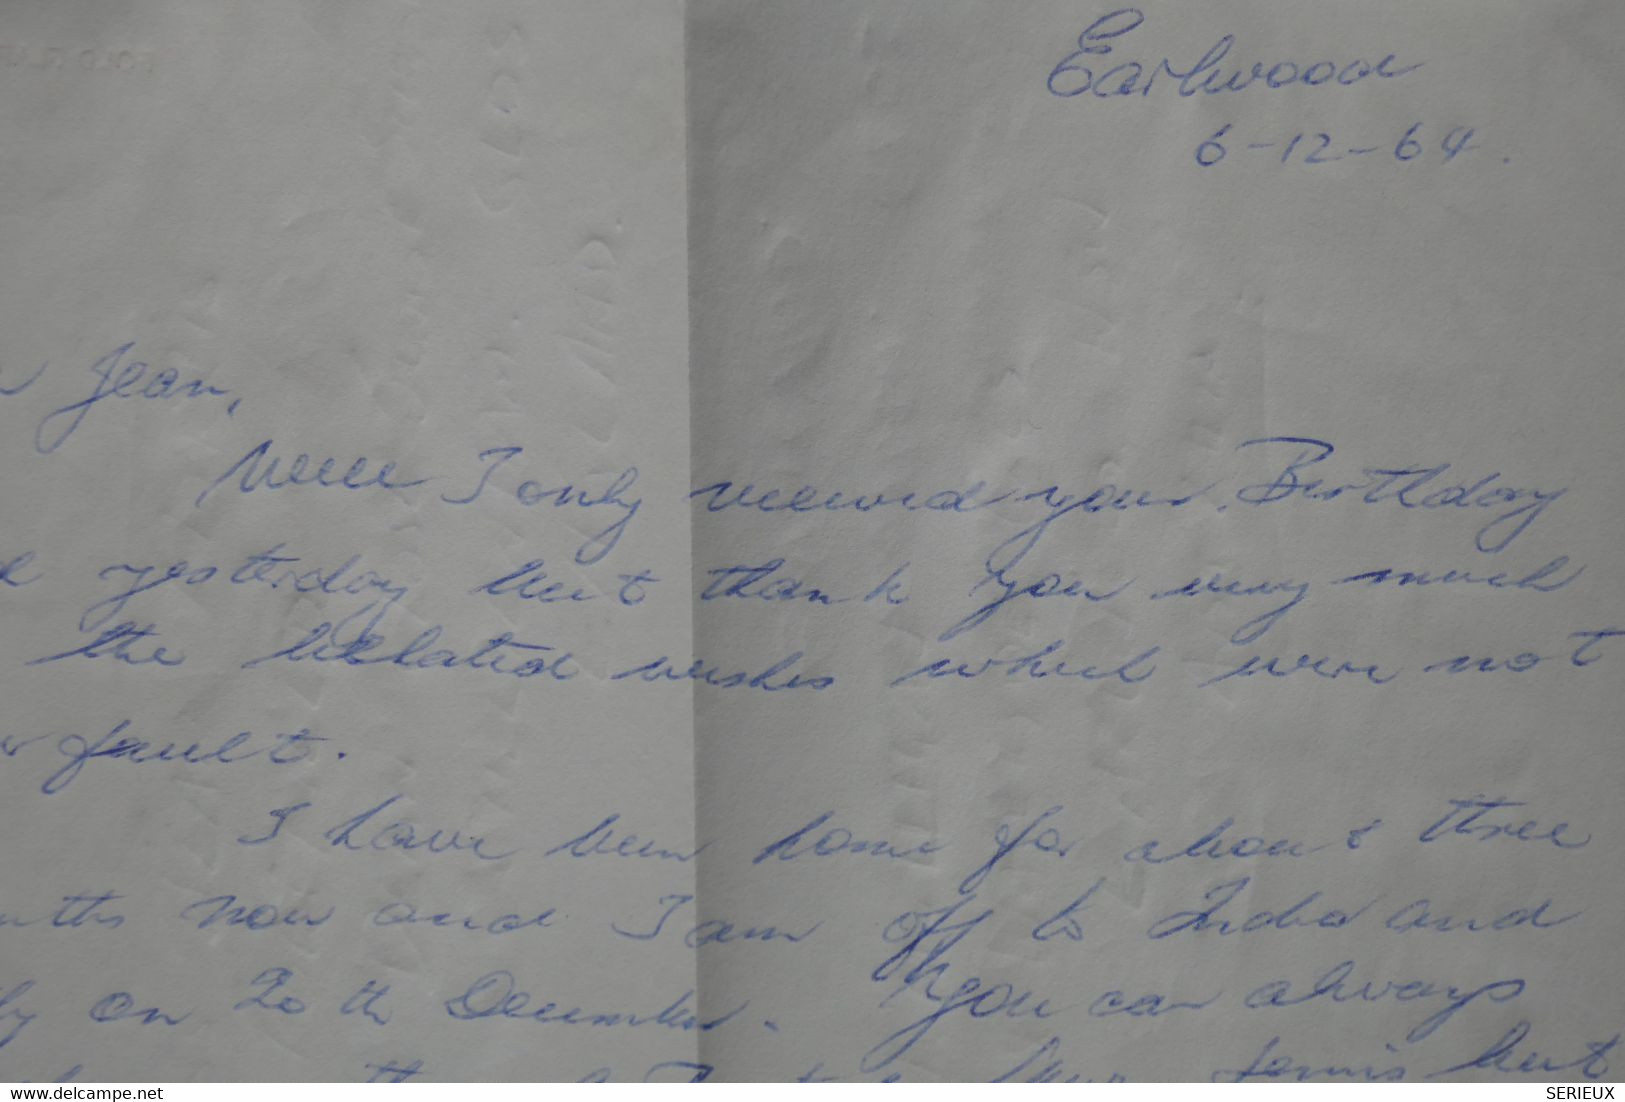 Earlwood
6-12-64.
Jean,
Well I only received your Birthday
yesterday but thank you very much
the belated wishes which were not
fault.
I have been home for about three
now and I am off to India and
on 20th December. You can always
but
delcampe.net
SERIEUX